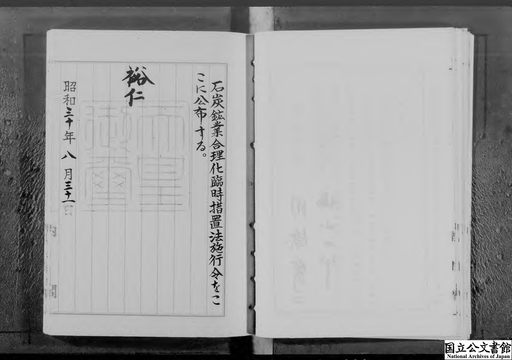 石炭鉱業合理化臨時措置法施行令をこ
こに公布する。
裕仁
天皇
御璽
昭和三十年八月三十一日
国立公文書館
National Archives of Japan